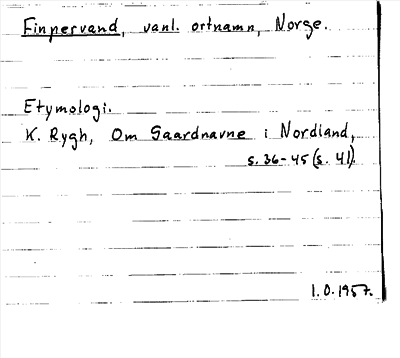 Finpervand, vanl. ortnamn, Norge.
Etymologi.
K. Rygh, Om Gaardnavne i Nordland,
s. 36-45 (s. 41).
1.0.1957.